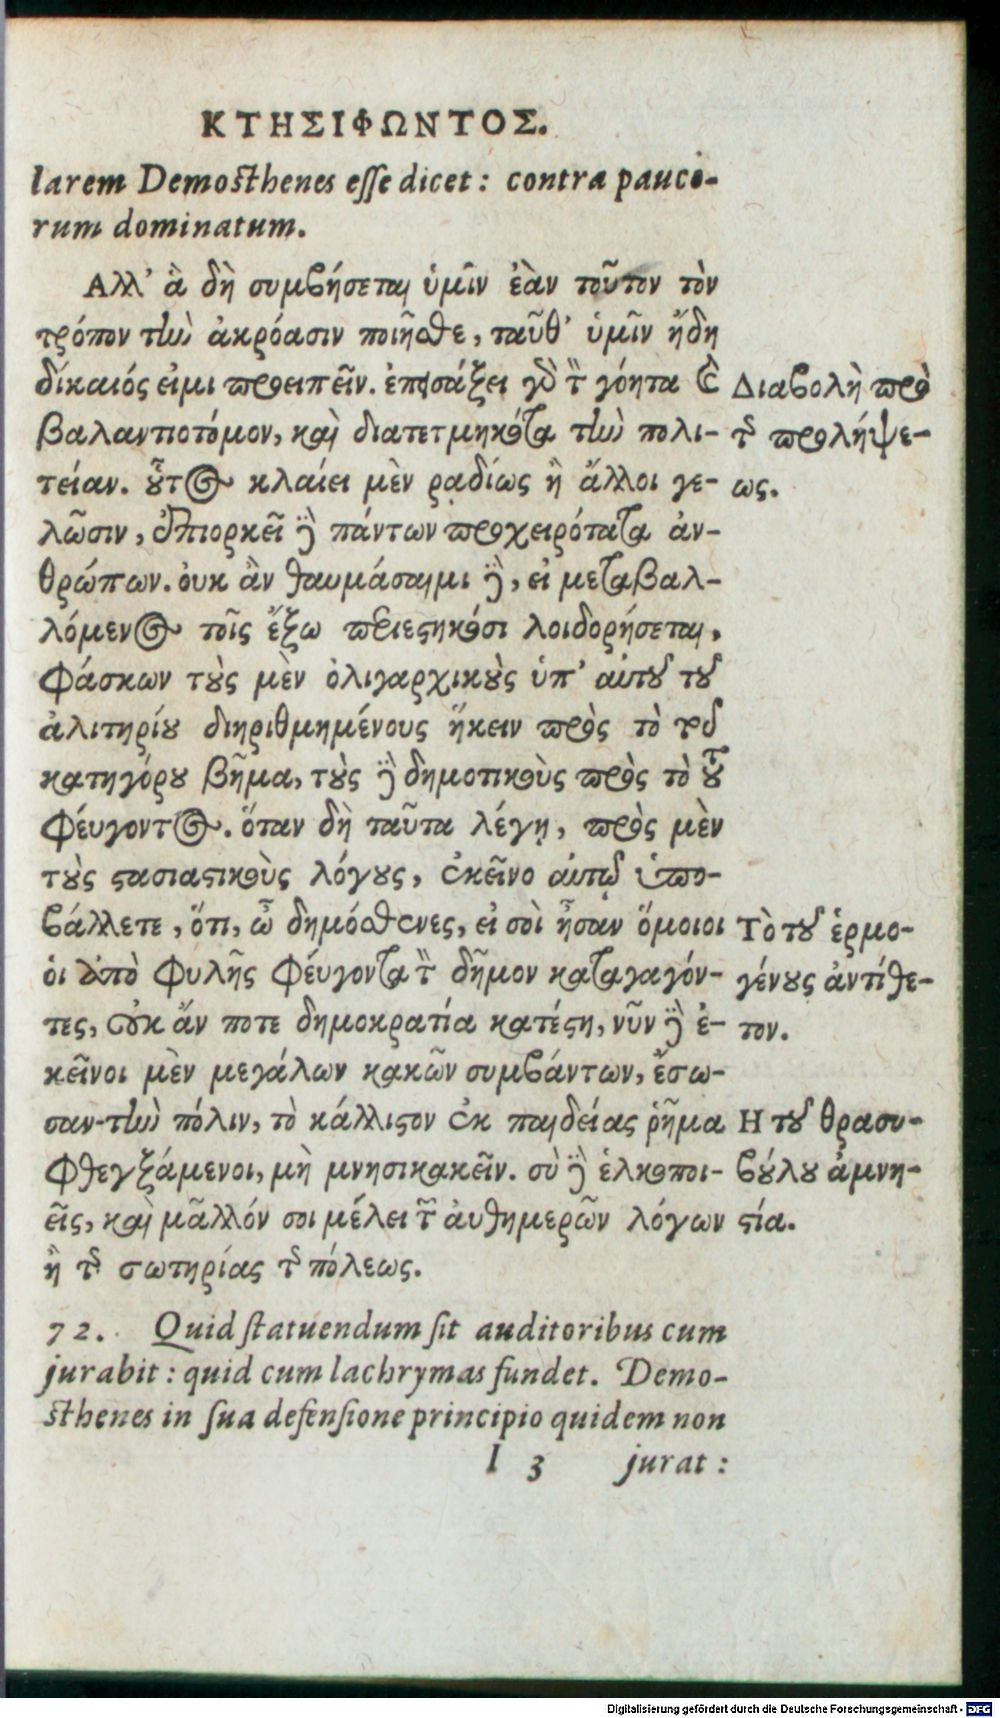 ΚΤΗΣΙΦΩΝΤΟΣ.
larem Demosthenes esse dicet: contra pauco-
rum dominatum.
Αλλ' ἃ δὴ συμβήσεται ὑμῖν ἐὰν τοῦτον τὸν
τρόπον τὴν ἀκρόασιν ποιῆσθε, ταῦθ' ὑμῖν ἤδη
δίκαιός εἰμι προειπεῖν. ἐπεισάξει γὸ τ γόητα ϗ
βαλαντιοτόμον, καὶ διατετμηκότα τὴν πολι-
τείαν. οὗτος κλαίει μὲν ῥαδίως ἢ ἄλλοι γε-
λῶσιν, ἐπιορκεῖ δὲ πάντων προχειρότατα ἀν-
θρώπων. ουκ ἂν θαυμάσαιμι δὲ, εἰ μεταβαλ-
λόμενος τοῖς ἔξω περιεστηκόσι λοιδορήσεται,
φάσκων τοὺς μὲν ὀλιγαρχικοὺς ὑπ' αὐτοῦ τοῦ
ἀλιτηρίου διηριθμημένους ἥκειν πρὸς τὸ τοῦ
κατηγόρου βῆμα, τοὺς δὲ δημοτικοὺς πρὸς τὸ τοῦ
φεύγοντος. ὅταν δὴ ταῦτα λέγῃ, πρὸς μὲν
τοὺς στασιαστικοὺς λόγους, ἐκεῖνο αὐτῷ ὑπο-
βάλλετε, ὅτι, ὦ δημόσθενες, εἰ σοὶ ἦσαν ὅμοιοι
οἱ ἀπὸ Φυλῆς φεύγοντα τὸν δῆμον καταγαγόν-
τες, οὐκ ἄν ποτε δημοκρατία κατέστη, νῦν δὲ ἐ-
κεῖνοι μὲν μεγάλων κακῶν συμβάντων, ἔσω-
σαν τὴν πόλιν, τὸ κάλλιστον ἐκ παιδείας ῥῆμα
φθεγξάμενοι, μὴ μνησικακεῖν. σὺ δὲ ἑλκοποι-
εῖς, καὶ μᾶλλόν σοι μέλει τῶν αὐθημερῶν λόγων
ἢ τῆς σωτηρίας τῆς πόλεως.
Διαβολὴ πρὸ
τῆς προλήψε-
ως.
Τὸ τοῦ ἑρμο-
γένους ἀντίθε-
τον.
Η τοῦ θρασυ-
βούλου ἀμνη-
στία.
72. Quid statuendum sit auditoribus cum
jurabit: quid cum lachrymas fundet. Demo-
sthenes in sua defensione principio quidem non
I 3 jurat:
Digitalisierung gefördert durch die Deutsche Forschungsgemeinschaft - DFG